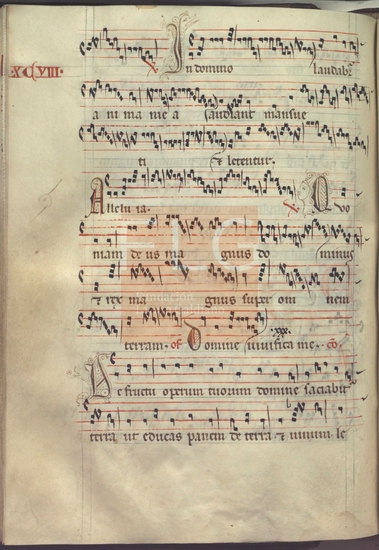 XCVIII.
In domino laudabit
anima mea audiant mansue
ti & letentur.
Alleluia. Quo
niam deus magnus dominus
& rex magnus super omnem
terram. of Domine vivifica me. xxx. co.
De fructu operum tuorum domine saciabit
terra ut educas panem de terra & vinum le